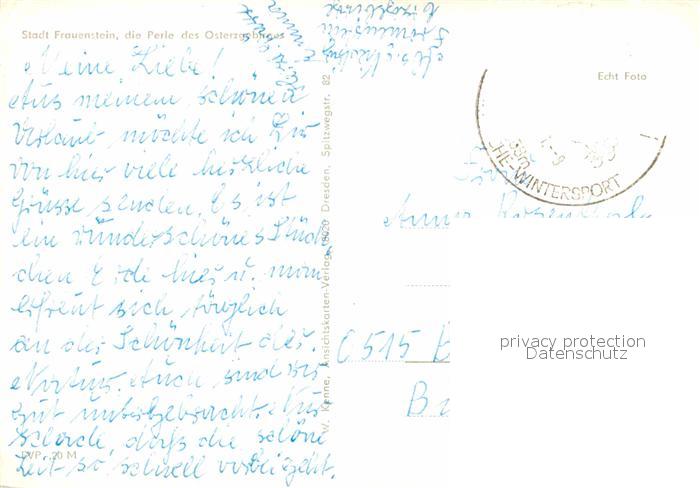 Stadt Frauenstein, die Perle des Osterzgebirges
Echt Foto
Meine Liebe!
Aus meinem schönen
Urlaub möchte ich Dir
von hier viele herzliche
Grüsse senden. Es ist
ein wunderschönes Stück-
chen Erde hier u. man
erfreut sich täglich
an der Schönheit der
Natur. Auch sind wir
gut untergebracht. Nur
schade, dafs die schöne
Zeit so schnell vorbeigeht.
EVP -.20 M
W. Kenne, Ansichtskarten-Verlag, 8020 Dresden, Spitzwegstr. 82
CHE-WINTERSPORT
Anna
6515
privacy protection
Datenschutz